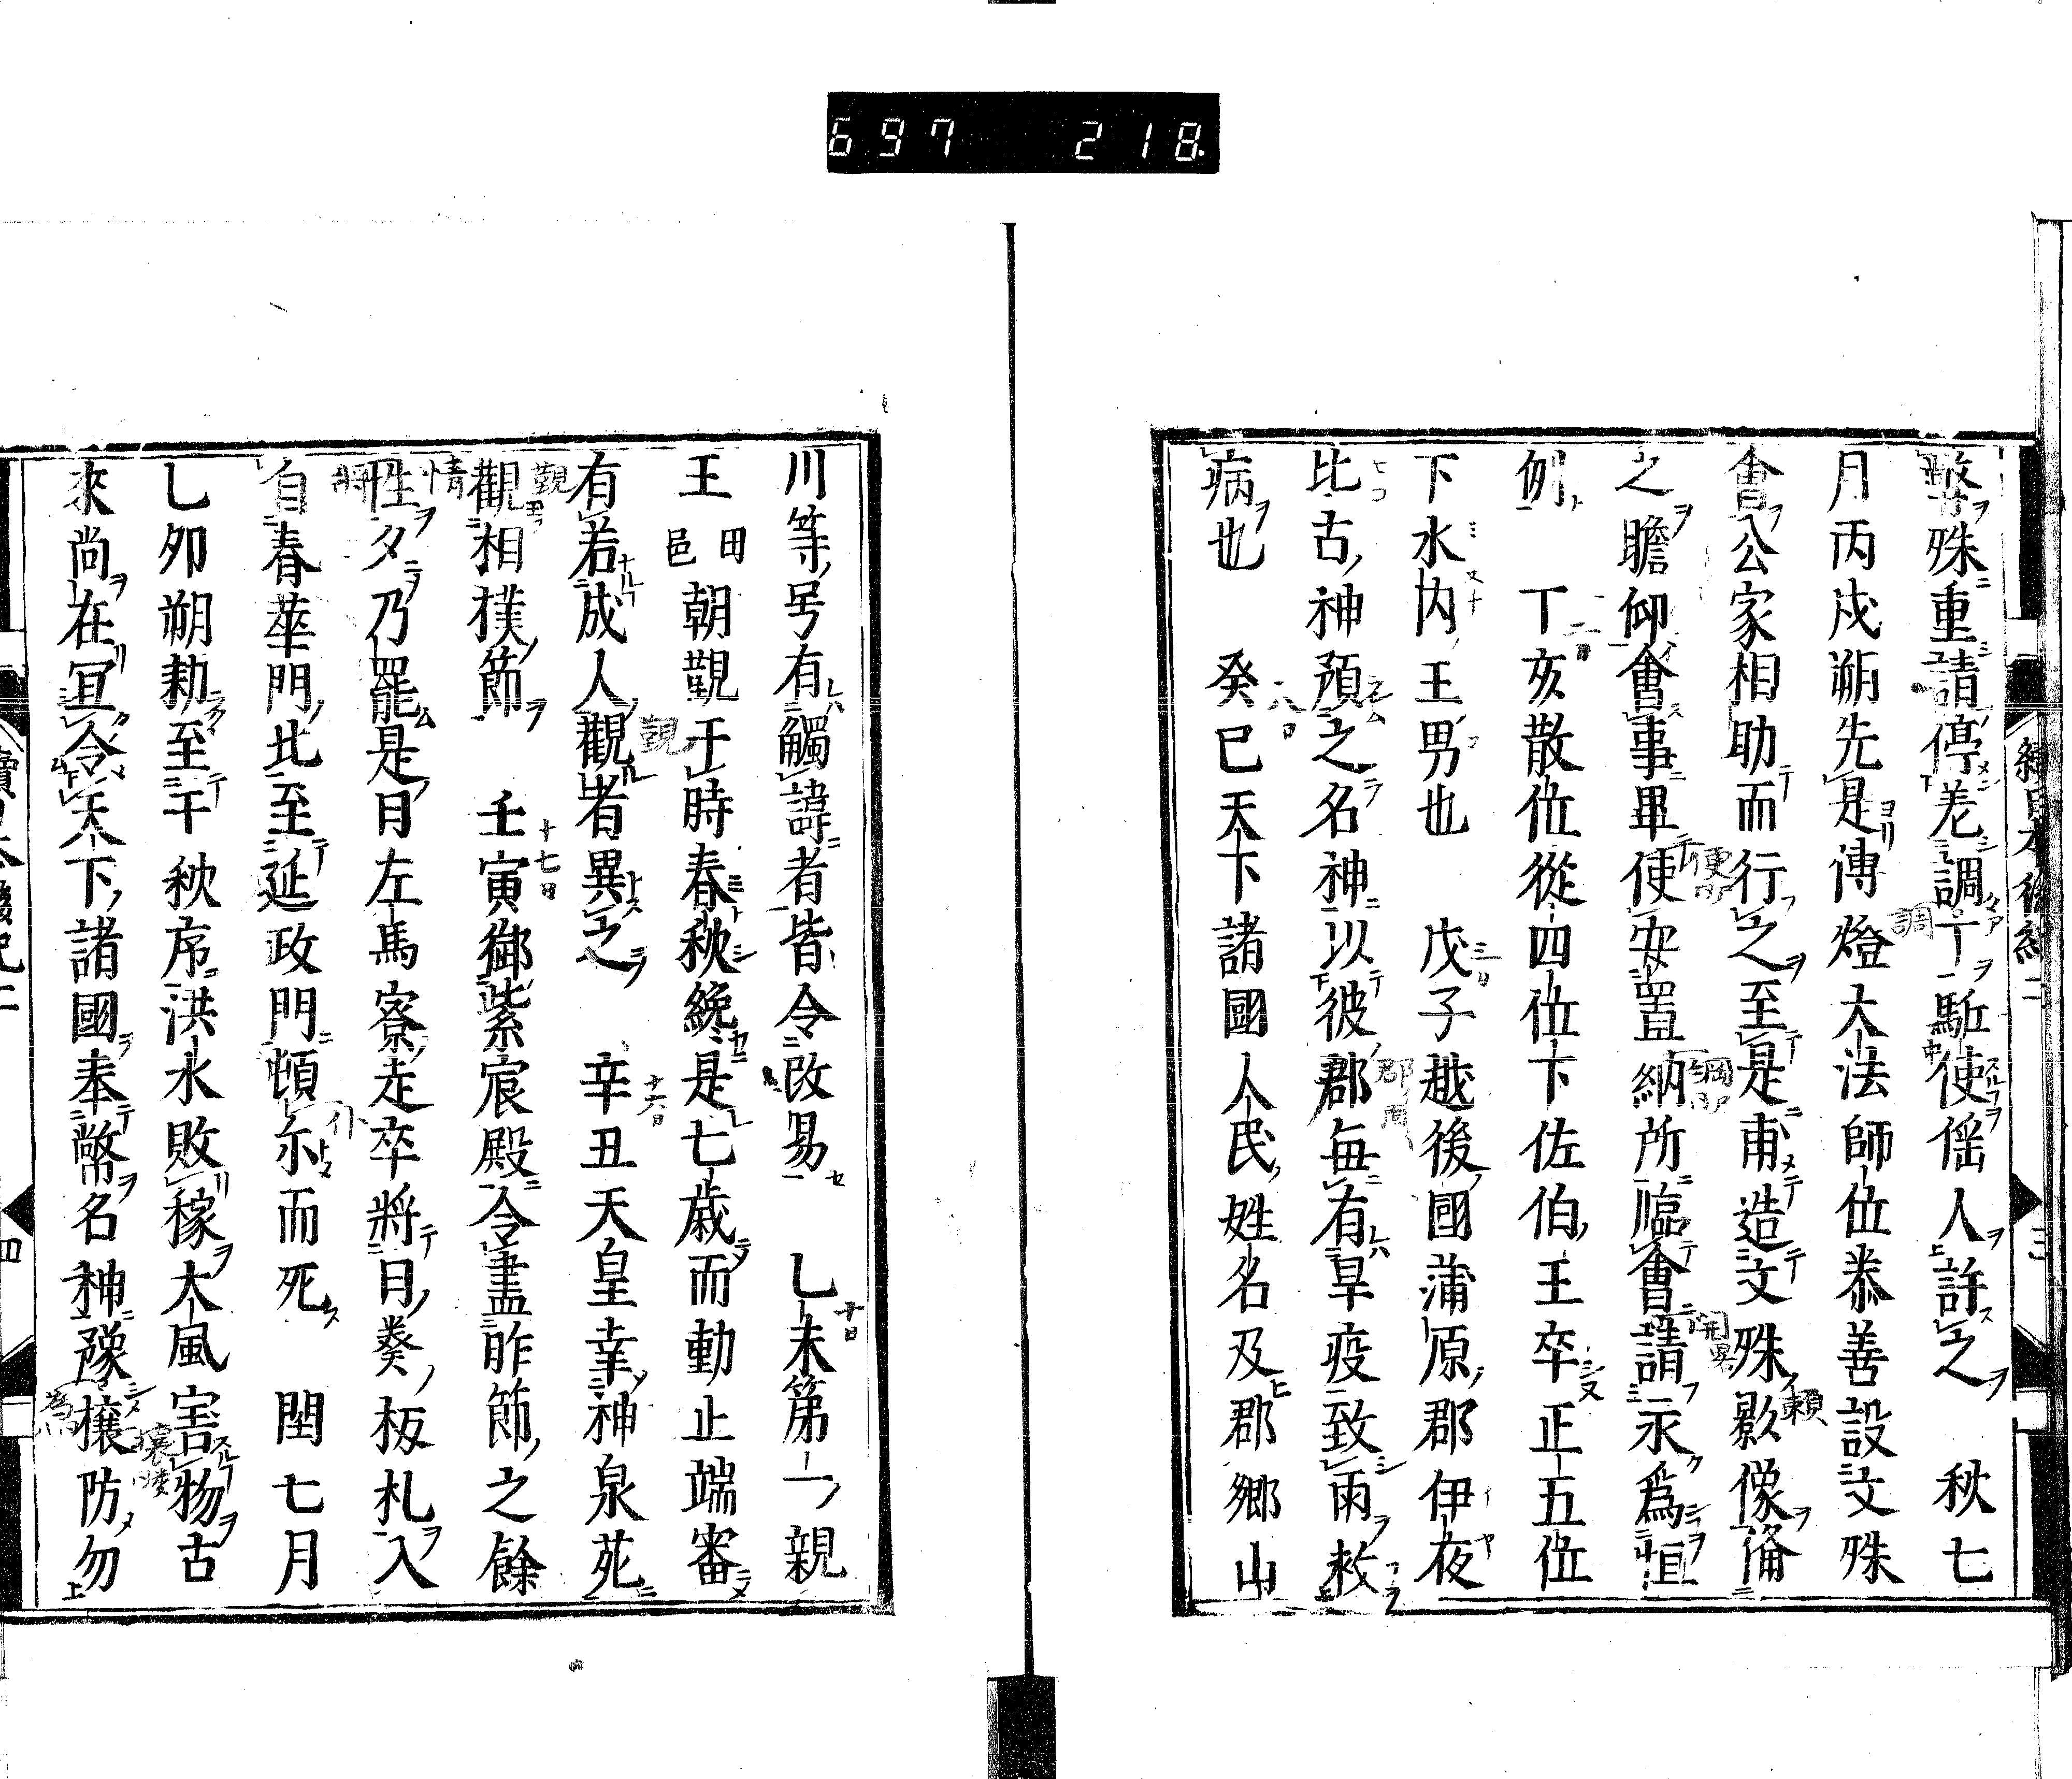 697 218
續日本後紀二
三
弊殊重請停差調丁駈使徭人許之 秋七
月丙戌朔先是傳燈大法師位泰善設文殊
會公家相助而行之至是甫造文殊影像備
之瞻仰會事畢使安置納所臨會請永爲恒
例 丁亥散位從四位下佐伯王卒正五位
下水内王男也 戊子越後國蒲原郡伊夜
比古神預之名神以彼郡毎有旱疫致雨救
病也 癸巳天下諸國人民姓名及郡郷山
川等号有觸諱者皆令改易 乙未第一親
王田邑朝覲于時春秋纔是七歳而動止端審
有若成人觀者異之 辛丑天皇幸神泉苑
觀相撲節 壬寅御紫宸殿令盡昨節之餘
性夕乃罷是日左馬寮走卒將日癸板札入
自春華門北至延政門頓尓而死 閏七月
乙夘朔勅至于秋序洪水敗稼大風害物古
來尚在冝令天下諸國奉幣名神豫攘防勿
續日本後紀二
四